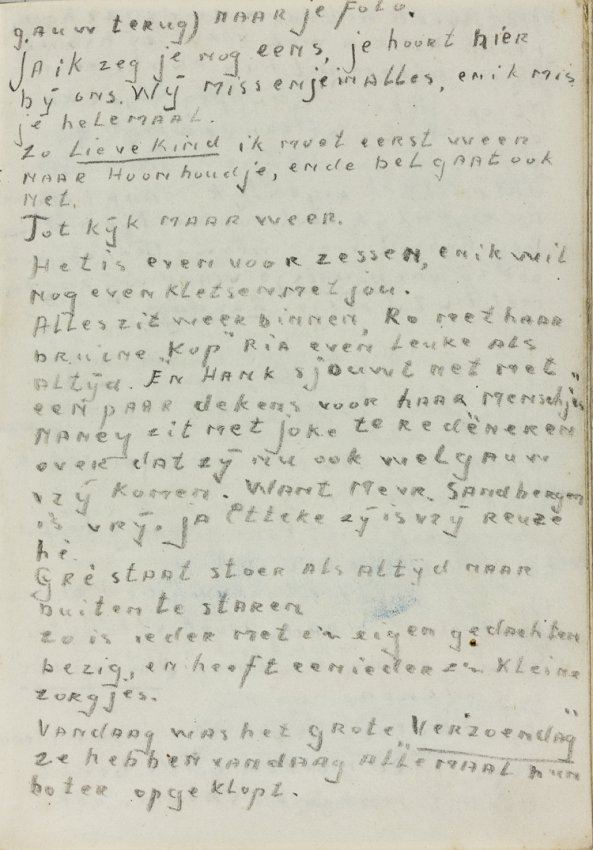 gauw terug) naar je foto.
Ja ik zeg je nog eens, je hoort hier
bÿ ons. Wÿ missen je in Alles, en ik mis
je helemaal.
Zo Lieve Kind ik moet eerst weer
naar Hoonhoudje, en de bel gaat ook
net.
Tot kÿk maar weer.
Het is even voor zessen, en ik wil
nog even kletsen met jou.
Alles zit weer binnen, Ro met haar
bruine „Kop" Ria even leuke als
altÿd. En Hank sjouwt net met
een paar dekens voor haar Menschjes"
Nancy zit met Joke te redeneren
over dat zÿ nu ook wel gauw
vrÿ komen. Want Mevr. Sandbergen
is vrÿ. Ja Etteke zÿ is vrÿ reuze
hè.
Gré staat stoer als altÿd naar
buiten te staren
Zo is ieder met z'n eigen gedachten
bezig, en heeft een ieder z'n kleine
zorgjes.
Vandaag was het grote „Verzoendag"
ze hebben vandaag allemaal hun
boter opgeklopt.